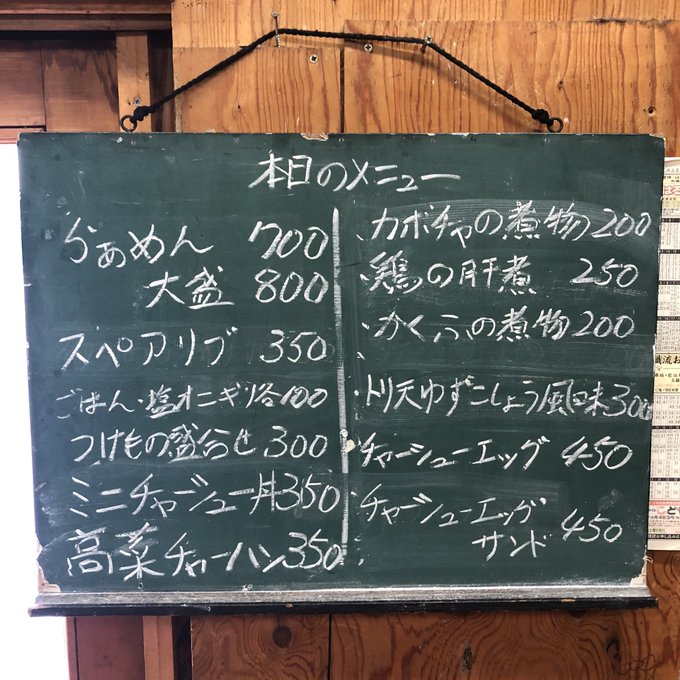 本日のメニュー
らぁめん 700
大盛 800
スペアリブ 350
ごはん・塩オニギリ各100
つけもの盛合せ 300
ミニチャーシュー丼350
高菜チャーハン350
・カボチャの煮物200
・鶏の肝煮 250
・かくふの煮物200
・トリ天ゆずこしょう風味300
・チャーシューエッグ 450
・チャーシューエッグ
サンド 450